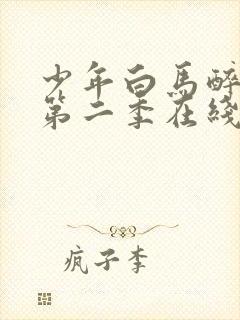 少年白馬醉
第二季在綫
疯子李